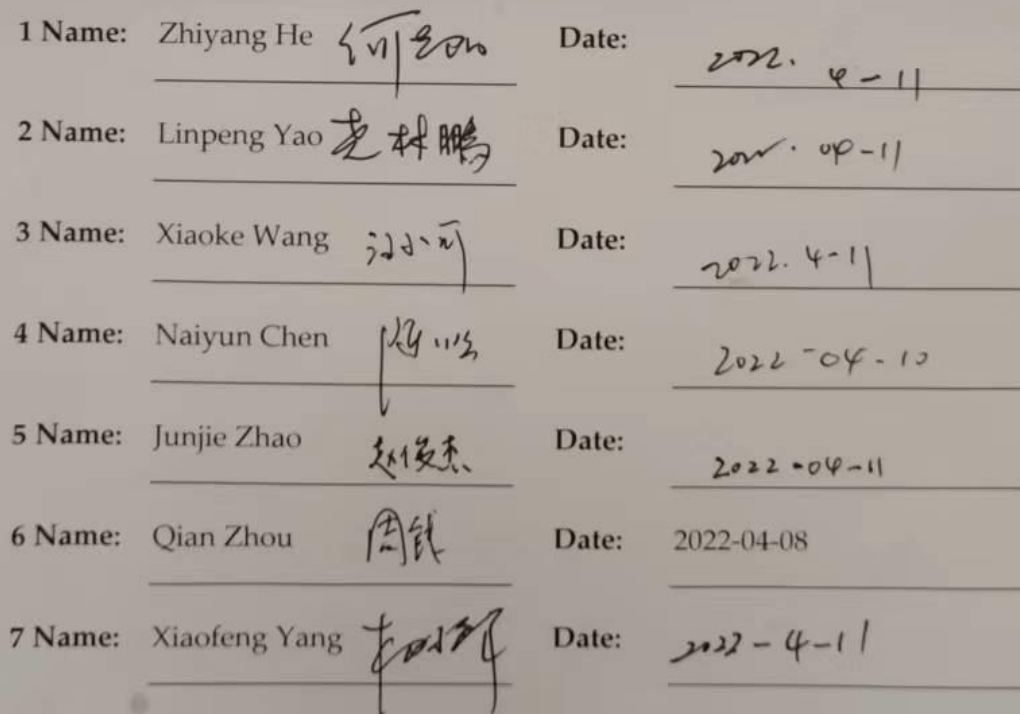 1 Name: Zhiyang He 何 Date: 2022. 4-11
2 Name: Linpeng Yao 尧林鹏 Date: 2022. 04-11
3 Name: Xiaoke Wang 汪小可 Date: 2022. 4-11
4 Name: Naiyun Chen 陈 Date: 2022-04-10
5 Name: Junjie Zhao 赵俊杰 Date: 2022-04-11
6 Name: Qian Zhou 周钱 Date: 2022-04-08
7 Name: Xiaofeng Yang Date: 2022-4-11